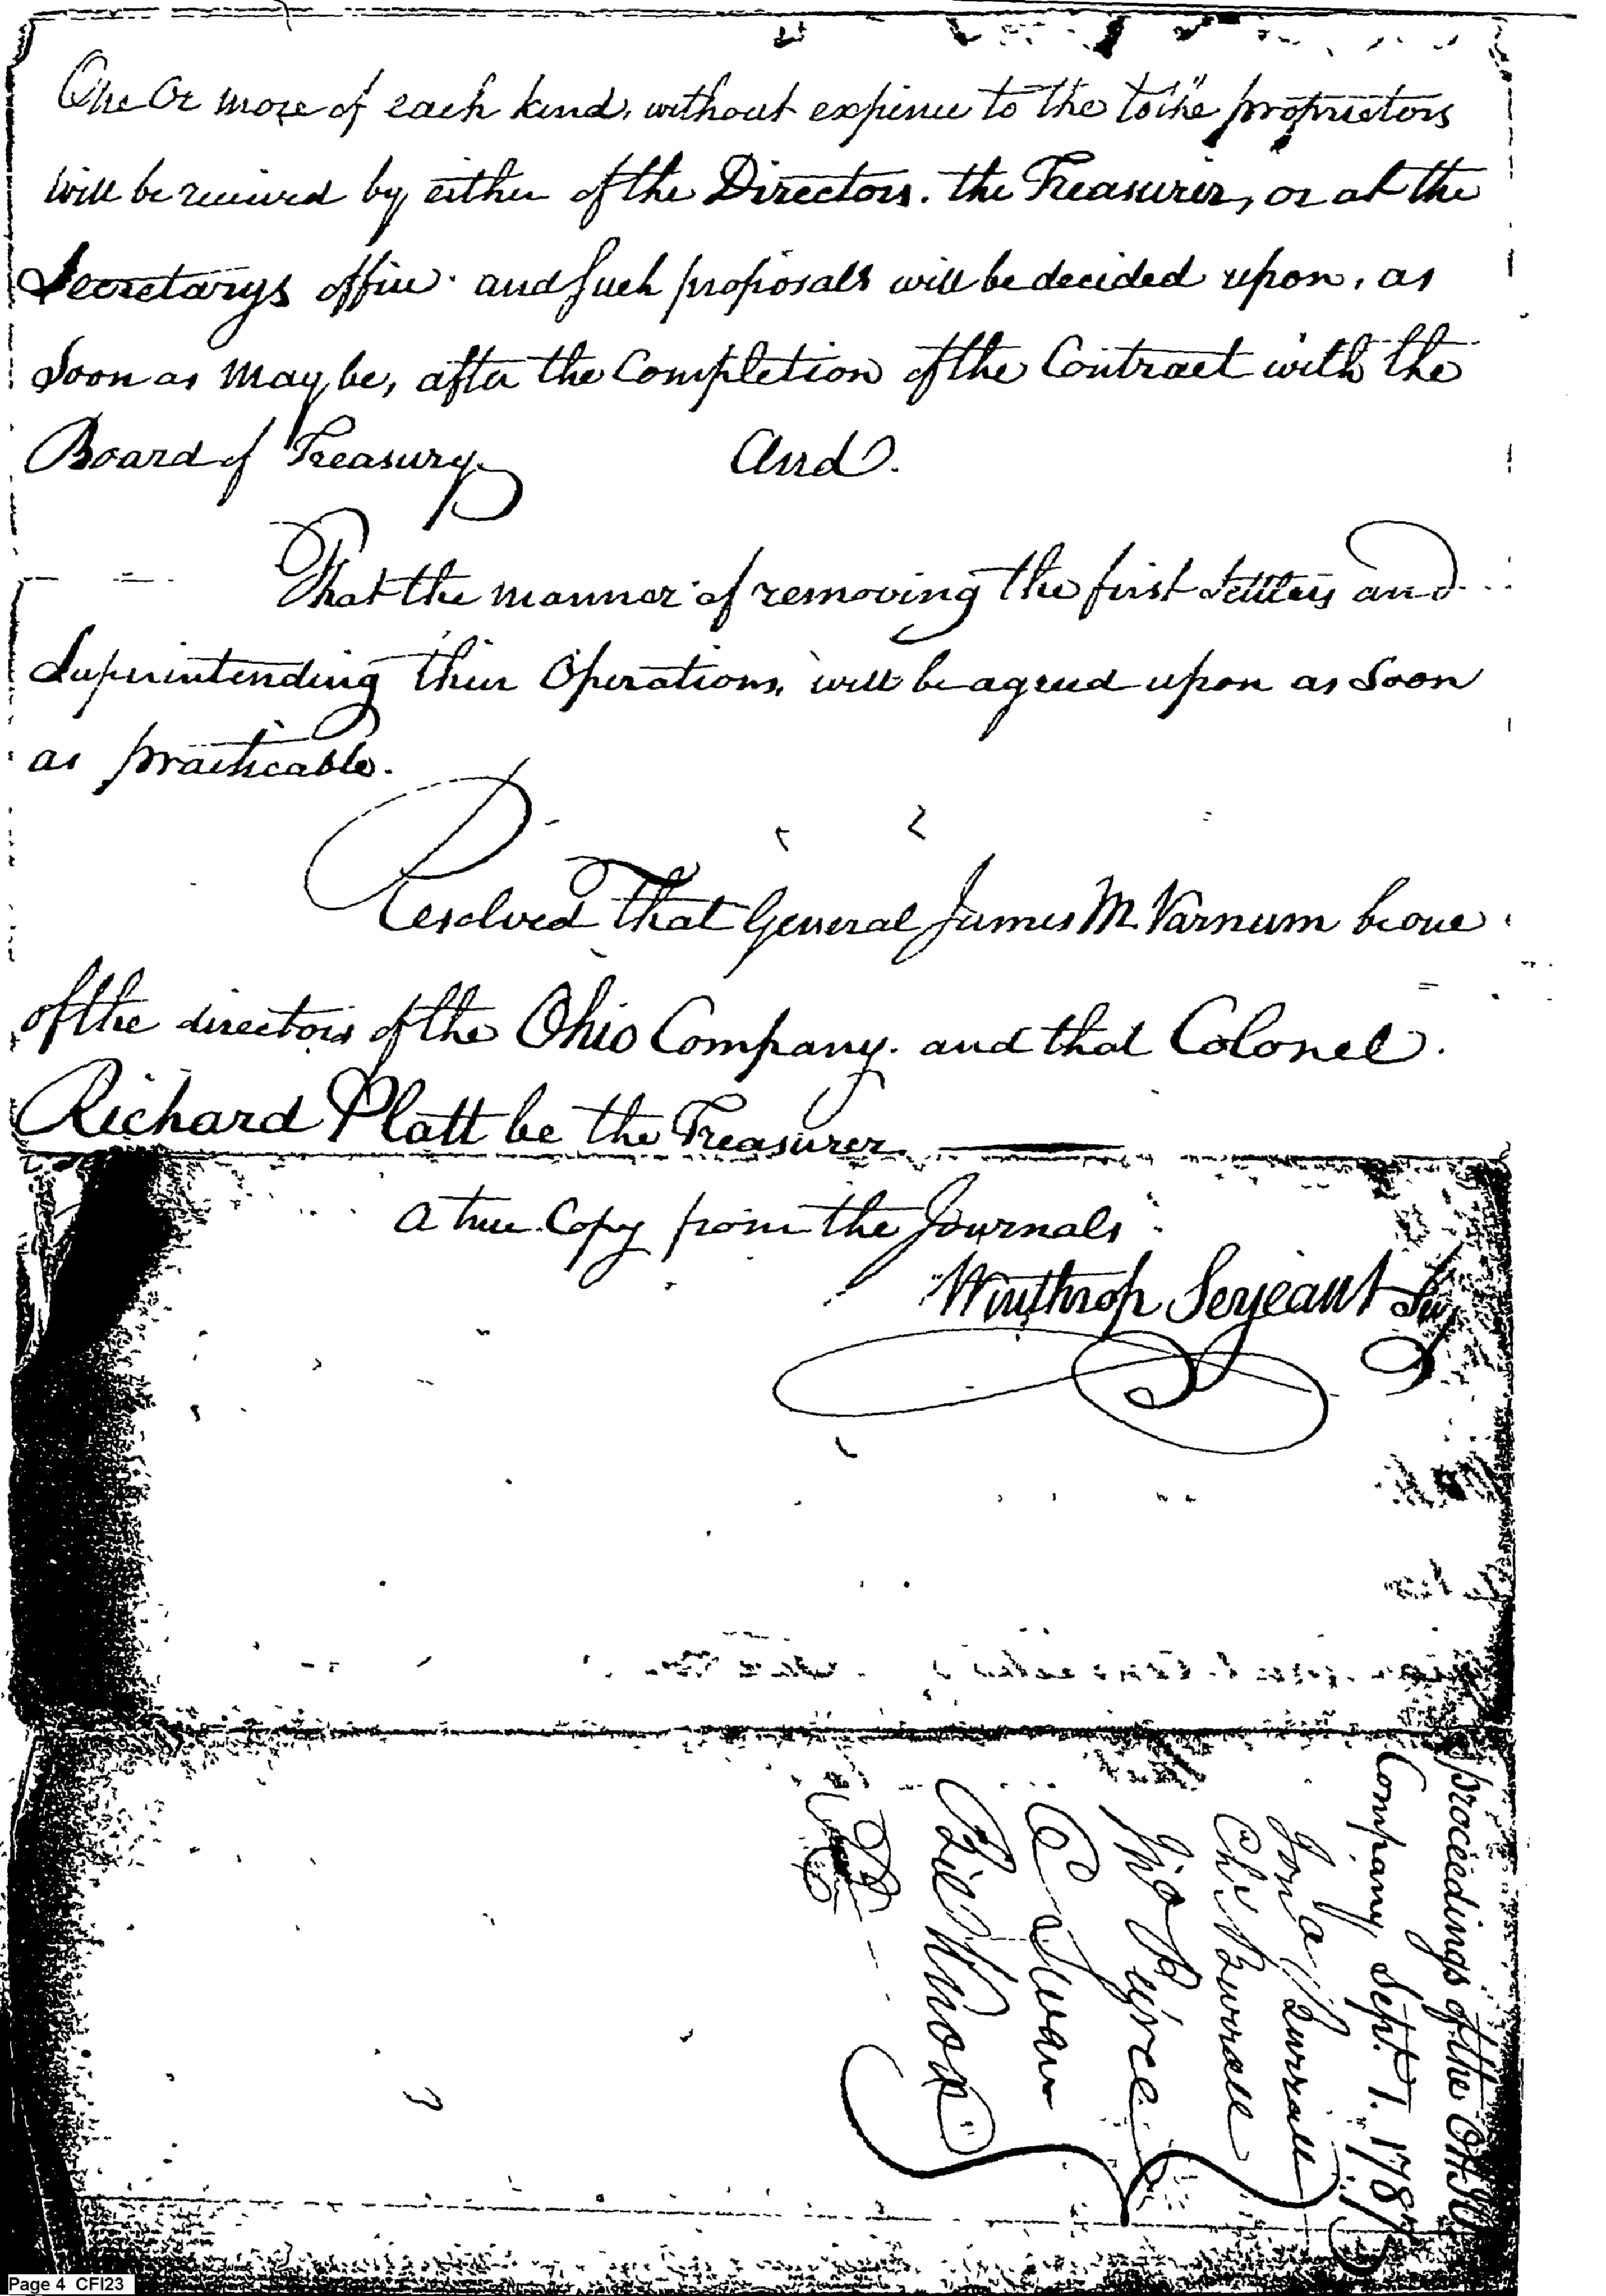 One Or more of each kind, without expence to the to the proprietors
will be received by either of the Directors. the Treasurer, or at the
Secretarys office. and Such proposals will be decided upon, as
Soon as May be, after the Completion of the Contract with the
Board of Treasury. And.
That the manner of removing the first Settlers and
Superintending their Operations, will be agreed upon as Soon
as practicable.
Resolved That General James M. Varnum be one
of the directors of the Ohio Company. and that Colonel.
Richard Platt be the Treasurer.
a true Copy from the Journals
Winthrop Serjeant Secy
proceedings of the Ohio
Company Sept. 1. 1787
Jona Burrall
Chs Burrall
Jno Peirce
C Swan
Page 4 CFI23